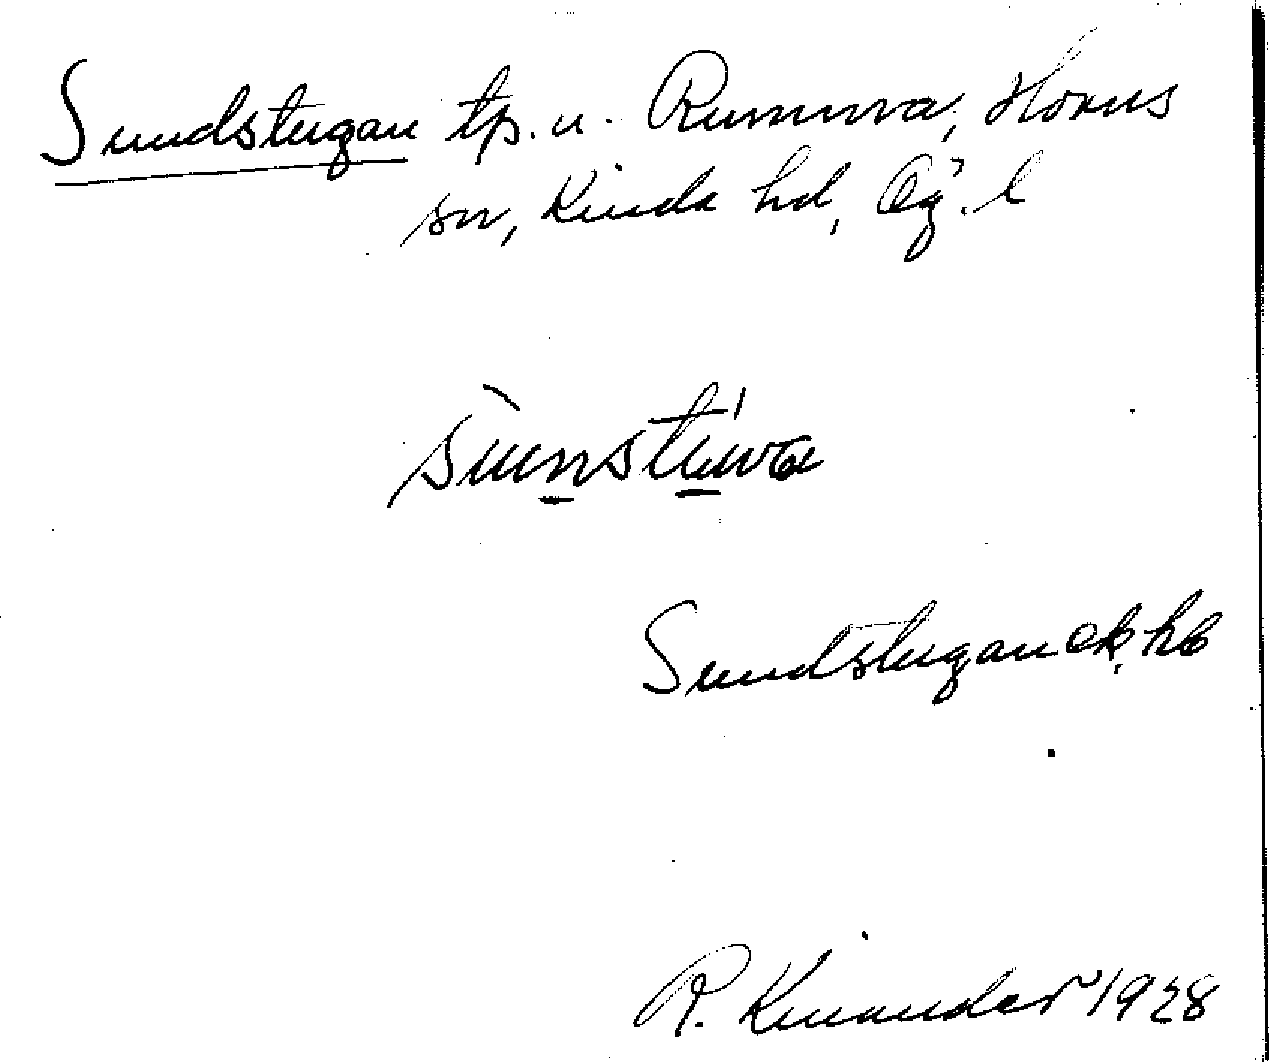 Sundstugan tp. u. Rumma, Horns
sn, Kinda hd, Ög. l
Sundstugan ek, hb
R. Kinander 1928